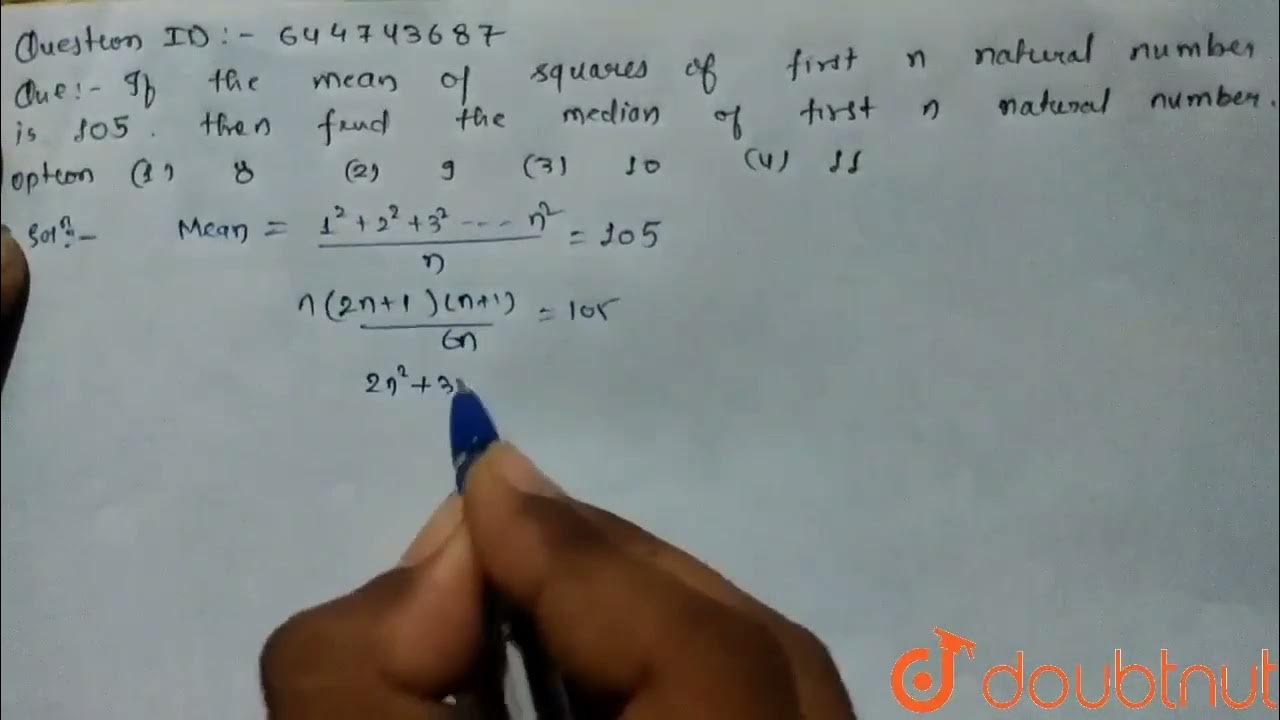 Question ID :- 644743687
Que :- If the mean of squares of first n natural number
is 105. then find the median of first n natural number.
option (1) 8 (2) 9 (3) 10 (4) 11
Solⁿ:- Mean = 1² + 2² + 3² ---- n² / n = 105
n(2n+1)(n+1) / 6n = 105
2n² + 3n
doubtnut